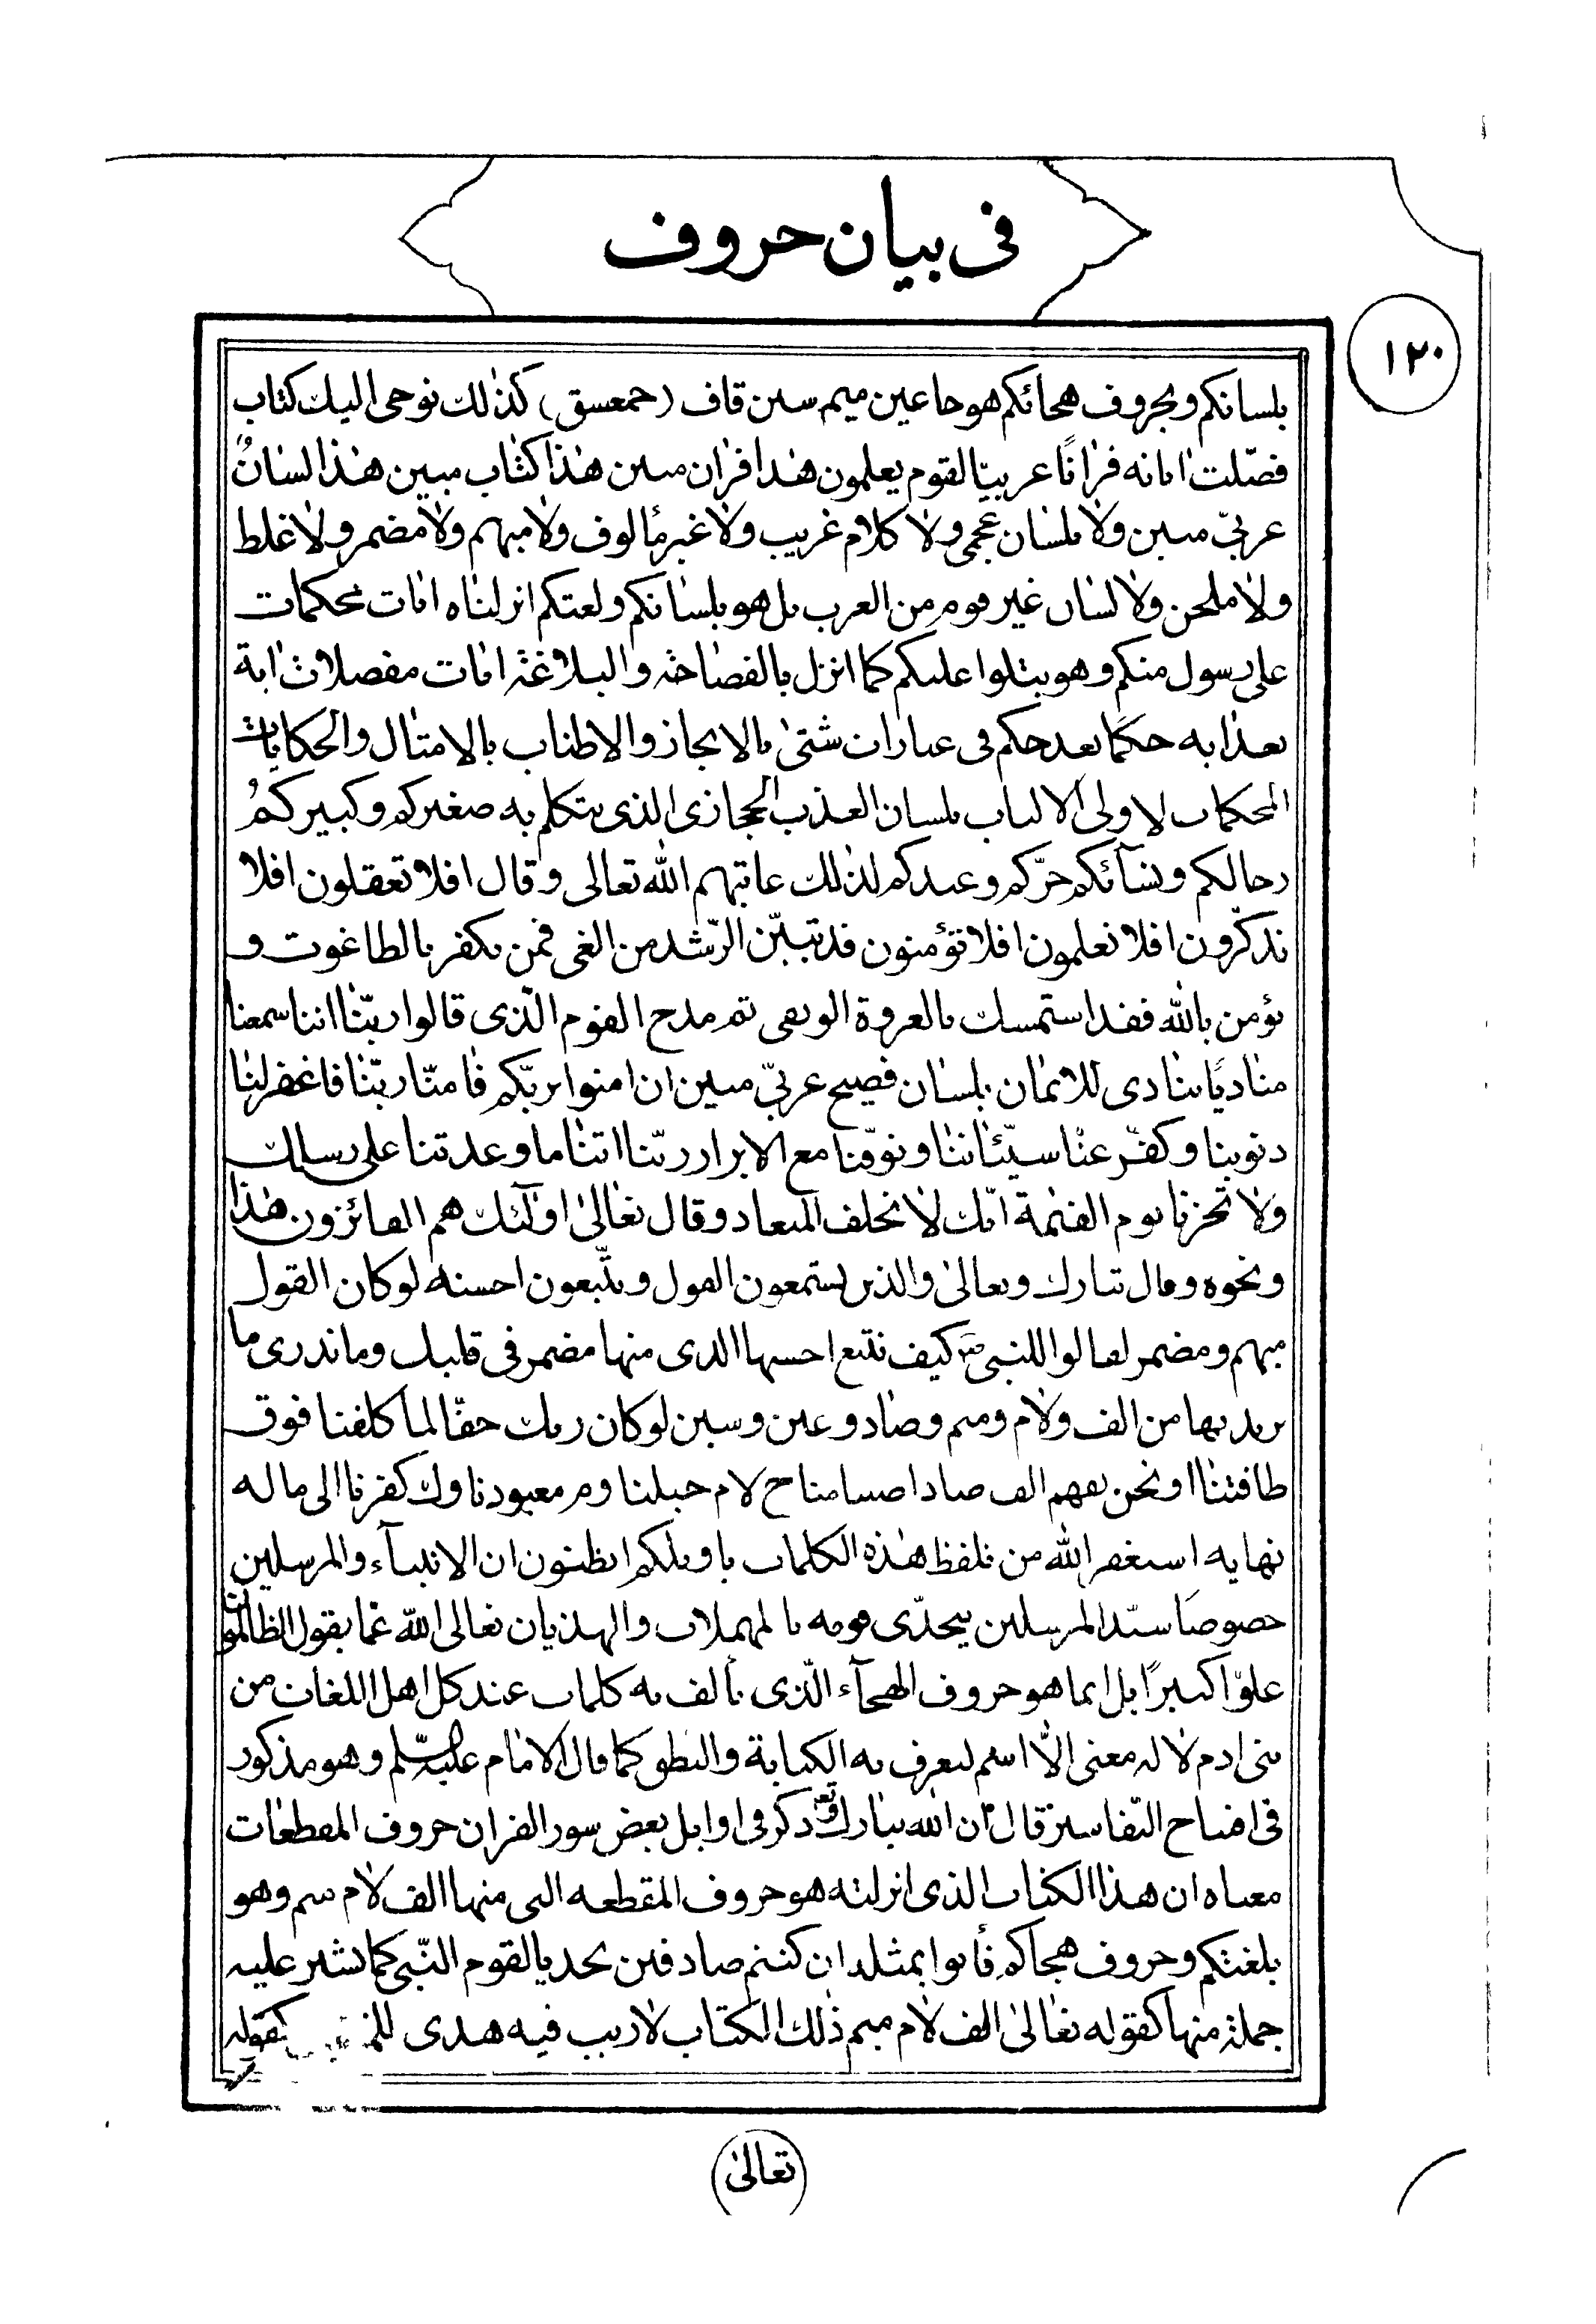 فى بيان حروف
١٢٠
بلسانكم وبحروف هجائكم هو حا عين ميم سين قاف (حمعسق) كذلك نوحى اليك كتاب
فصّلت اياته قرانًا عربيّا لقوم يعلمون هذا قران مبين هذا كتاب مبين هذا لسانٌ
عربىّ مبين ولا بلسان عجمى ولا كلام غريب ولا غير مألوف ولا مبهم ولا مضمر ولا غلط
ولا ملحن ولا لسان غير قوم من العرب بل هو بلسانكم ولغتكم انزلناه ايات محكمات
على رسول منكم وهو يتلوا عليكم كما انزل بالفصاحة والبلاغة ايات مفصلات اية
بعد اية حكمًا بعد حكم فى عبارات شتى بالايجاز والاطناب بالامثال والحكايات
المحكمات لاولى الالباب بلسان العذب الحجازى الذى يتكلم به صغيركم وكبيركمُ
رجالكم ونسآئكم حرّكم وعبدكم لذلك عاتبهم الله تعالى وقال افلا تعقلون افلا
تذكّرون افلا تعلمون افلا تؤمنون قد تبيّن الرّشد من الغى فمن يكفر بالطاغوت و
يؤمن بالله فقد استمسك بالعروة الوثقى ثم مدح القوم الّذى قالوا ربّنا اننا سمعنا
مناديًا ينادى للايمان بلسان فصيح عربىّ مبين ان امنوا بربّكم فامنّا ربّنا فاغفر لنا
ذنوبنا وكفّر عنّا سيّئاتنا وتوفّنا مع الابرار ربّنا اتنا ما وعدتنا على رسلك
ولا تحزنا يوم القيمة انّك لا تخلف الميعاد وقال تعالى اولئك هم الفائزون هذا
ونحوه وقال تبارك وتعالى والذين يستمعون القول ويتّبعون احسنه لو كان القول
مبهم ومضمر لقالوا للنبى ص كيف نتبع احسنها الذى منها مضمر فى قلبك وما ندرى ما
يريد بها من الف ولام وميم وصاد وعين وسين لو كان ربك حقّا لما كلفنا فوق
طاقتنا او نحن نفهم الف صاد لام حبلنا وم معبودنا وك كفرنا الى ما له
نهايه استغفر الله من تلفظ هذه الكلمات يا ويلكم اتظنون ان الانبيآء والمرسلين
خصوصًا سيّد المرسلين يتحدّى قومه بالمهملات والهذيان تعالى الله عمّا يقول الظالمون
علوّا كبيرًا بل انما هو حروف الهجآء الّذى تألف به كلمات عند كل اهل اللغات من
بنى ادم لا له معنى الّا اسم ليعرف به الكتابة والنطق كما قال الامام عليه السّلم وهو مذكور
فى التفاسير قال ان الله تبارك وتع ذكر فى اوايل بعض سور القران حروف المقطعات
معناه ان هذا الكتاب الذى انزلته هو حروف المقطعه التى منها الف لام ميم وهو
بلغتكم وحروف هجاكم فأتوا بمثله ان كنتم صادقين تحديا لقوم النّبى كما تشير عليه
جملة منها كقوله تعالى الف لام ميم ذلك الكتاب لا ريب فيه هدى كقوله
تعالى